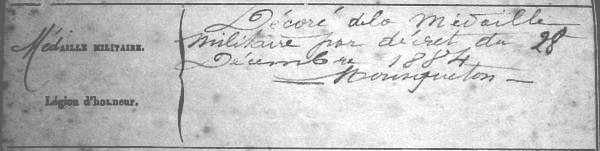 Décoré de la Médaille
MÉDAILLE MILITAIRE. militaire par décret du 28
Décembre 1884
Mousqueton
Légion d'honneur.